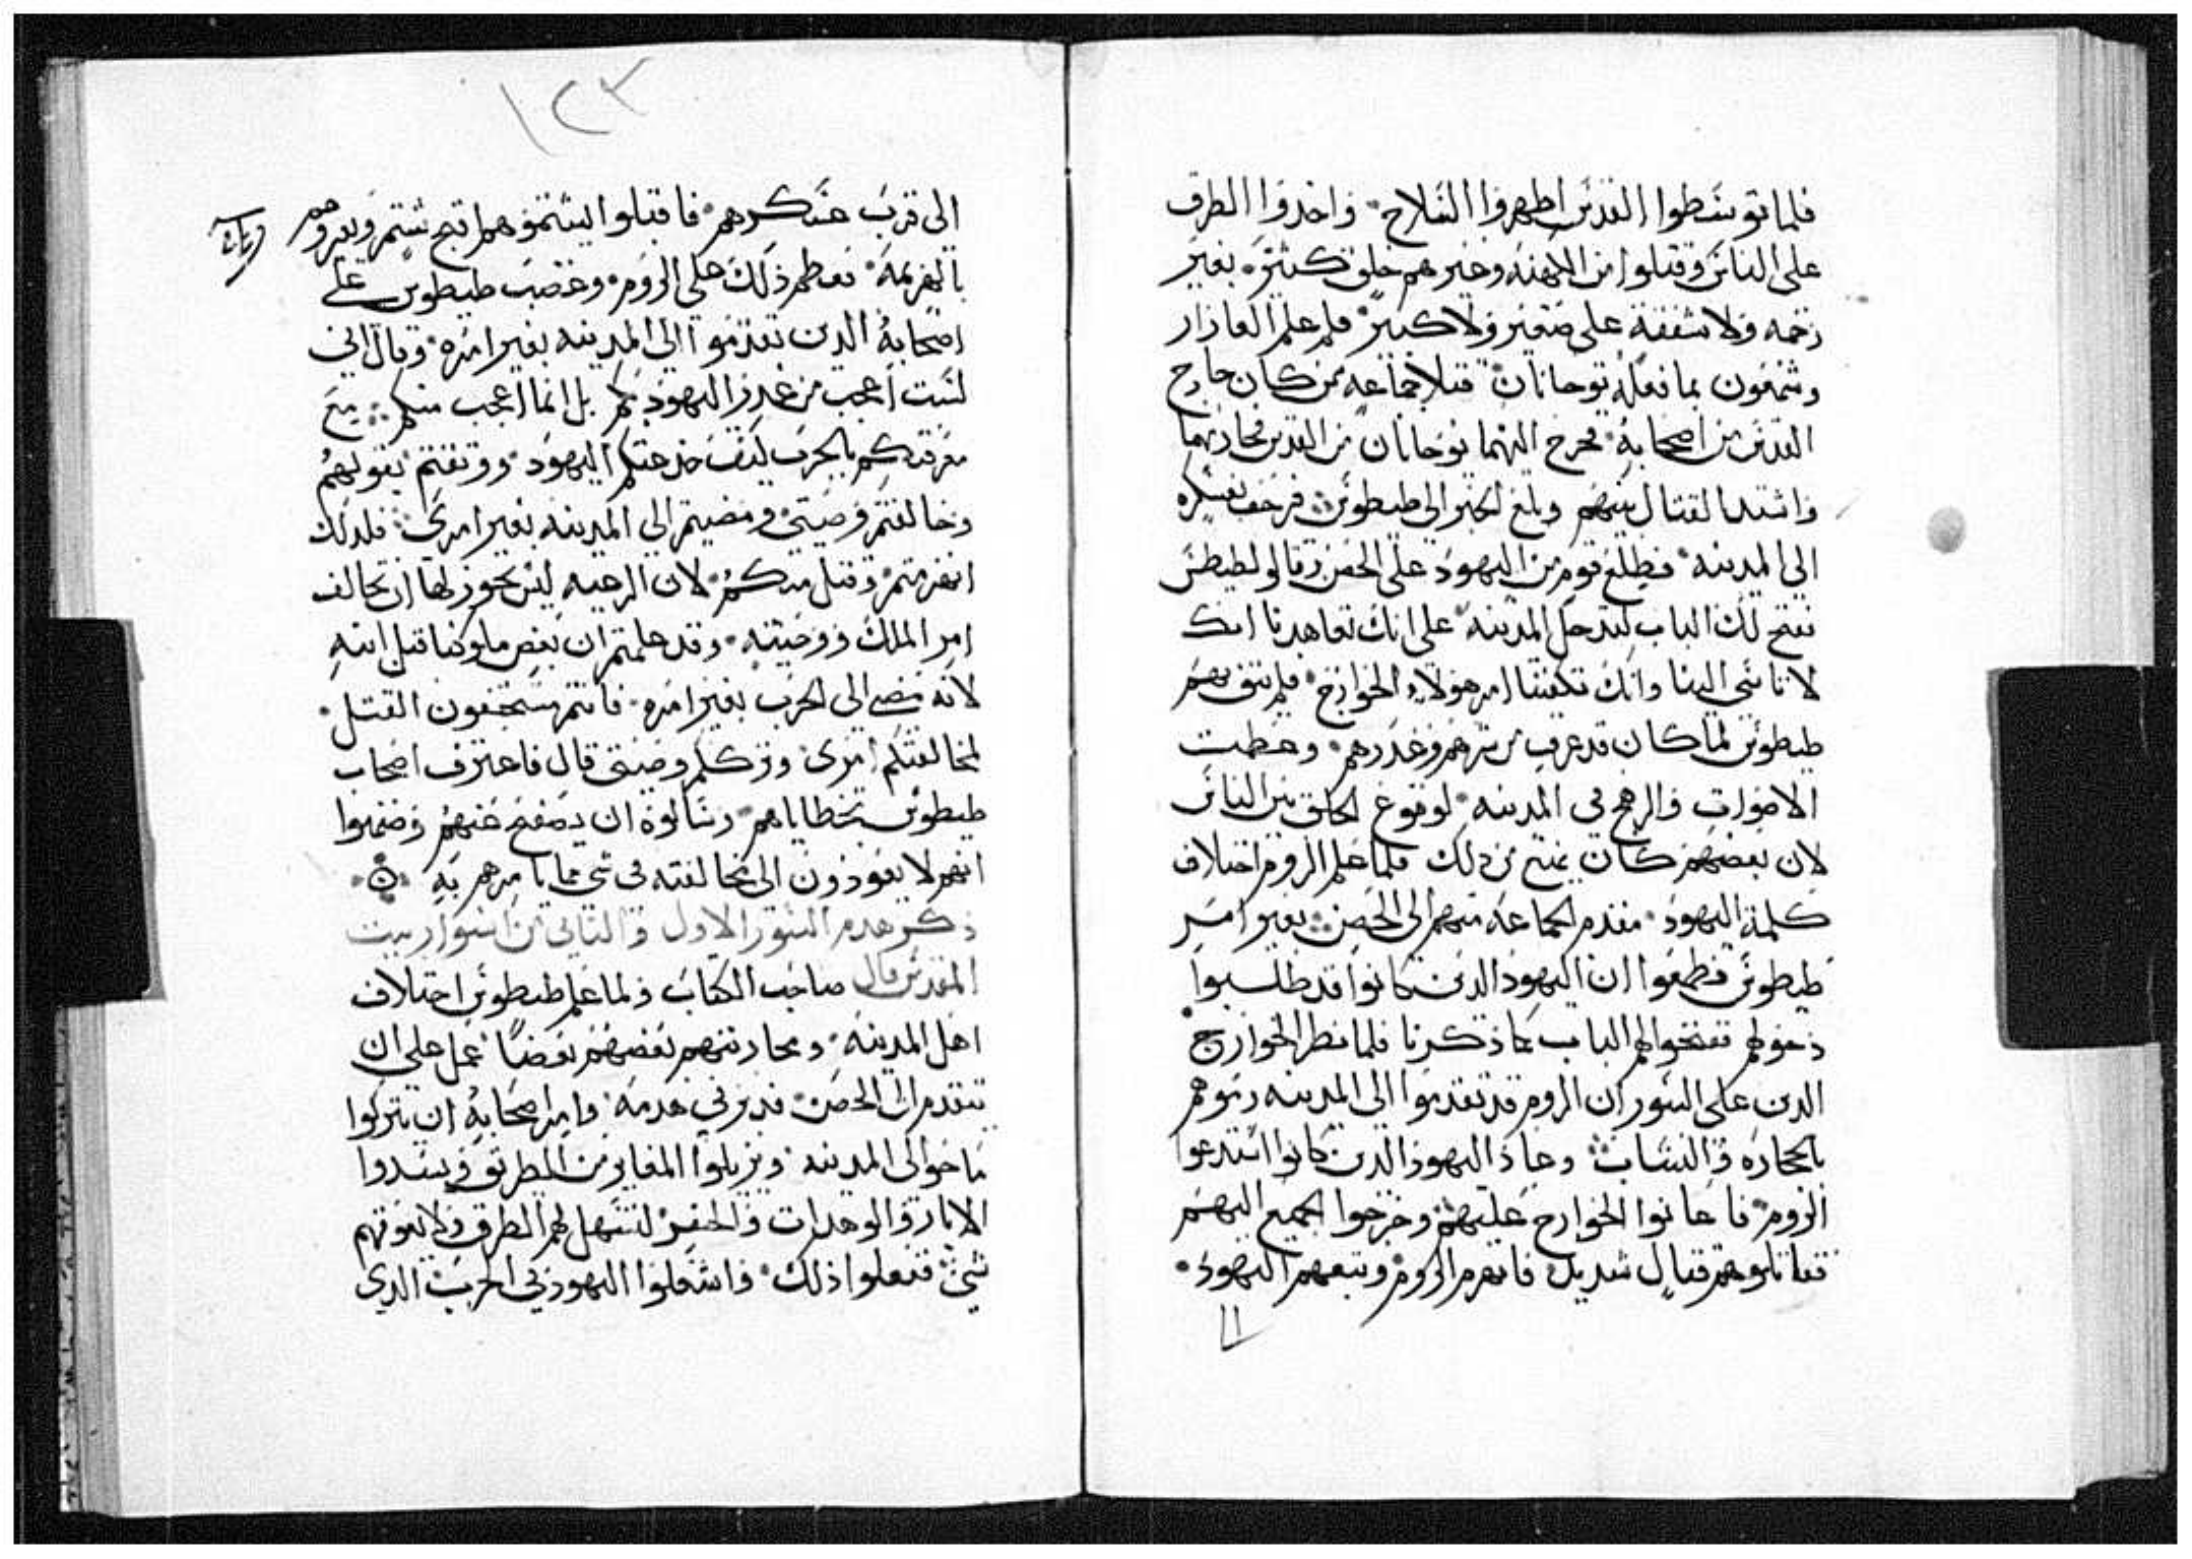 فلما توسطوا القدس اظهروا السلاح واخدوا الطرق
على الناس وقتلوا من الكهنه وغيرهم خلق كثير بغير
رحمه ولا شفقة على صغير ولا كبير فلم علم العازار
وشمعون بما فعله يوحانان قتلا جماعه ممن كان خارج
القدس من اصحابه فخرج اليهما يوحانان من القدس فحاربهما
واشتد القتال بينهم وبلغ الخبر الى طيطوس فزحف بعسكره
الى المدينه فطلع قوم من اليهود على الحصن وقالو لطيطس
نفتح لك الباب لتدخل المدينه على انك تعاهدنا انك
لا تاسى الينا وانك تكفينا امر هولاء الخوارج فلم يثق بهم
طيطوس لما كان قد عرف من شرهم وغدرهم وعظمت
الاصوات والرهج في المدينه لوقوع الخلف بين الناس
لان بعضهم كان يمنع من دلك فلما علم الروم اختلاف
كلمة اليهود فتقدم جماعه منهم الى الحصن بغير امر
طيطوس فطمعوا ان اليهود الدين كانوا قد طلبوا
دخولهم تفتحوا لهم الباب كما ذكرنا فلما نظر الخوارج
الدين على السور ان الروم قد تقدموا الى المدينه رموهم
بالحجاره والنشاب وعاد اليهود الدين كانوا استدعوا
الروم فاعانوا الخوارج عليهم وخرجوا الجميع اليهم
فقاتلوهم قتال شديد فانهزم الروم وتبعهم اليهود
١١
١٢٣
الى قرب عسكرهم فاقبلوا يشتموهم اقبح شتم ويعيروهم
بالهزيمه فعظم ذلك على الروم وغضب طيطوس على
اصحابه الدين تقدموا الى المدينه بغير امره وقال اني
لست اعجب من غدر اليهود بكم بل انما اعجب منكم مع
معرفتكم بالحرب كيف خدعتكم اليهود ووثقتم بقولهم
وخالفتم وصيتي ومضيتم الى المدينه بغير امري فلدلك
انهزمتم وقتل منكم لان الرعيه ليس يجوز لها ان تخالف
امر الملك ووصيته وقد علمتم ان بعض ملوكنا قتل ابنه
لانه مضى الى الحرب بغير امره فانتم مستحقون القتل
لمخالفتكم امري وترككم وصيتي قال فاعترف اصحاب
طيطوس بخطاياهم وسالوه ان يصفح عنهم وضمنوا
انهم لا يعودون الى مخالفته في شي مما يامرهم به
ذكر هدم السور الاول والتاني من اسوار بيت
المقدس قال صاحب الكتاب ولما علم طيطوس اختلاف
اهل المدينه ومحاربتهم بعضهم بعضا عمل على ان
يتقدم الى الحصن فدبر في هدمه وامر اصحابه ان يتركوا
ما حوالى المدينه ويزيلوا المقابر من الطريق ويسدوا
الابار والوهدات والحفر لتسهل لهم الطرق ولا يعوقهم
شي ففعلوا ذلك واشتغلوا اليهود في الحرب الدي